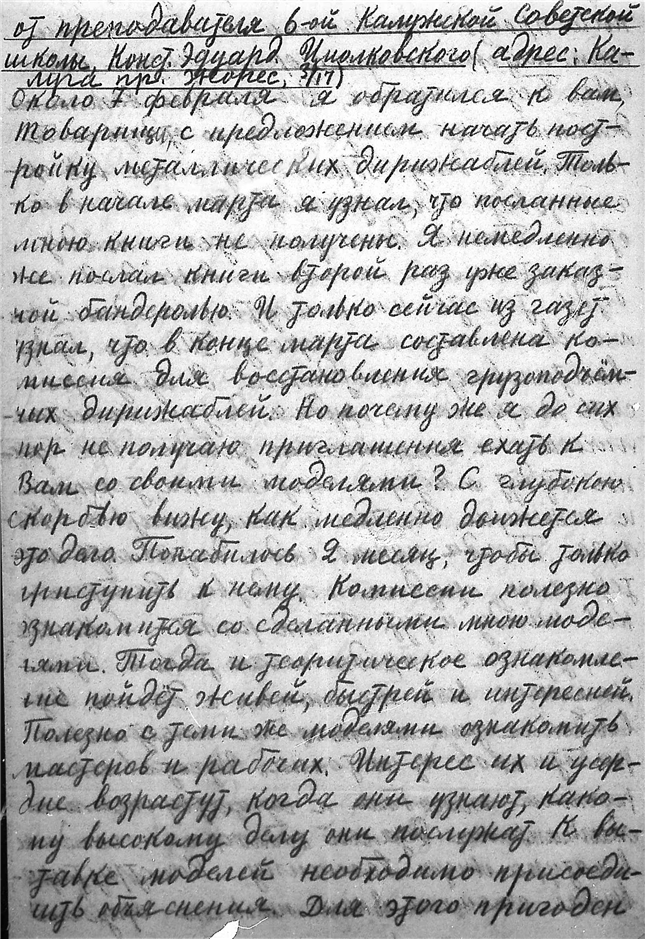 от преподавателя 6-ой Калужской Советской
школы, Конст. Эдуард. Циолковского (адрес: Ка-
луга пр. Жорес, 3/17)
Около 7 февраля я обратился к вам,
Товарищи, с предложением начать пост-
ройку металлических дирижаблей. Толь-
ко в начале марта я узнал, что посланные
мною книги не получены. Я немедленно
же послал книги второй раз уже заказ-
ной бандеролью. И только сейчас из газет
узнал, что в конце марта составлена ко-
миссия для восстановления грузоподъём-
ных дирижаблей. Но почему же я до сих
пор не получаю приглашения ехать к
Вам со своими моделями? С глубокою
скорбью вижу, как медленно движется
это дело. Понабилось 2 месяц, чтобы только
приступить к нему. Комиссии полезно
ознакомится со сделанными мною моде-
лями. Тогда и теоритическое ознакомле-
ние пойдет живей, быстрей и интересней.
Полезно с теми же моделями ознакомить
мастеров и рабочих. Интерес их и усер-
дие возрастут, когда они узнают, како-
му высокому делу они послужат. К вы-
ставке моделей необходимо присоеди-
нить объяснения. Для этого пригоден